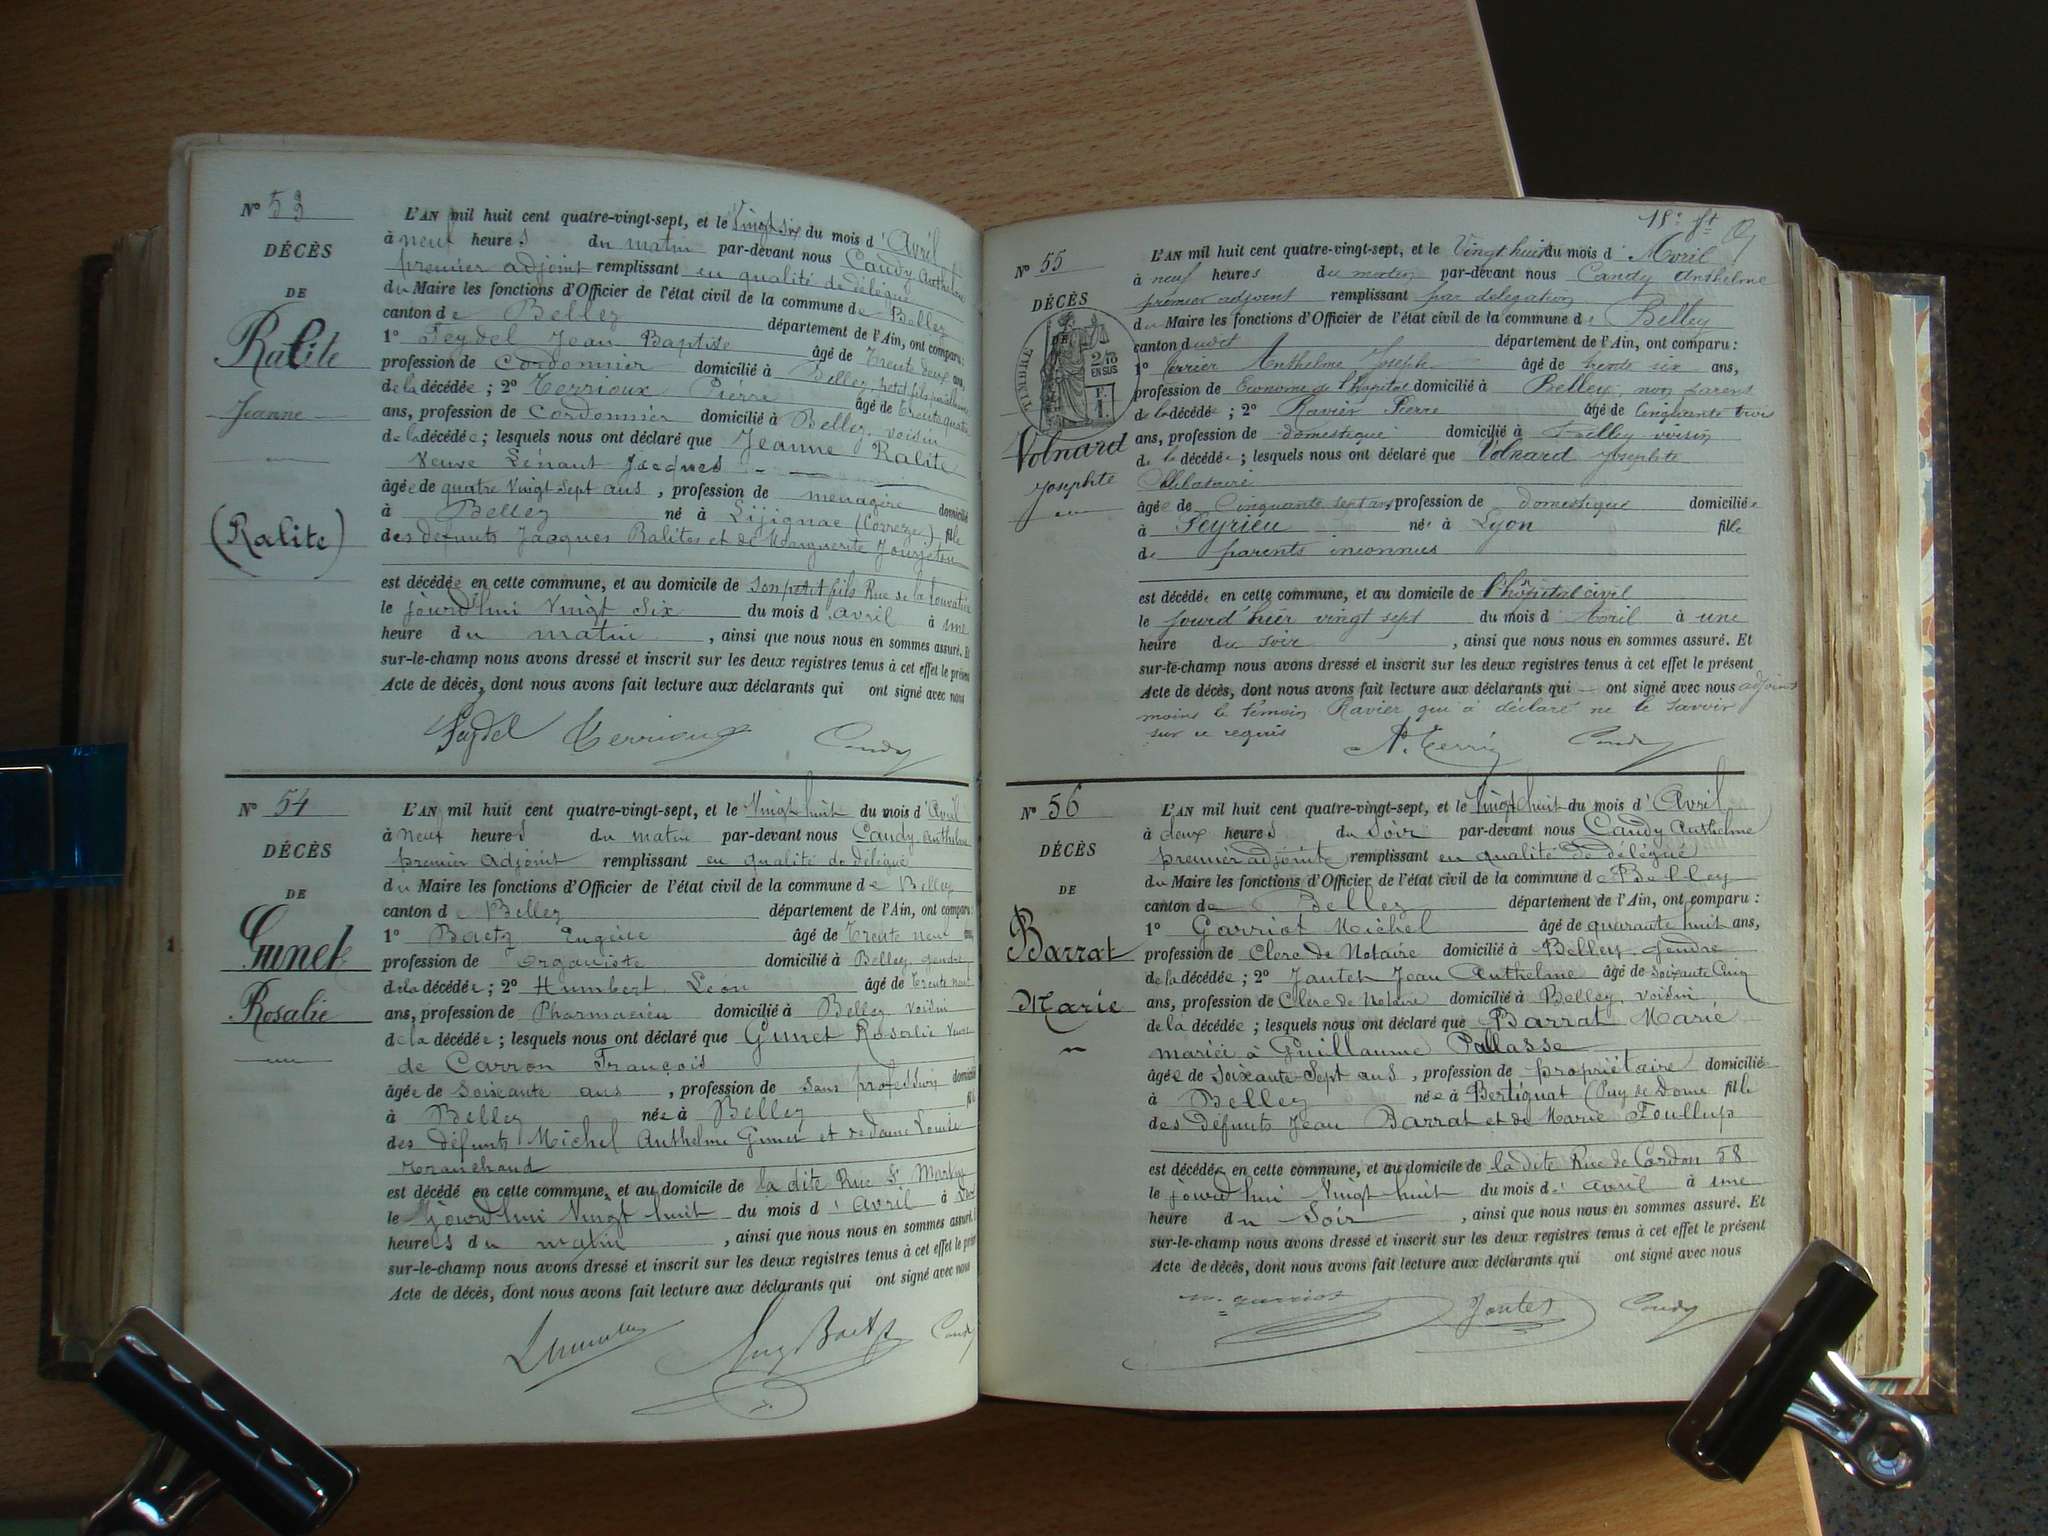 N° 53
DÉCÈS
DE
Ralite
Jeanne
(Ralite)
L'AN mil huit cent quatre-vingt-sept, et le Vingt six du mois d' Avril
à neuf heures du matin par-devant nous Candy Anthelme
premier adjoint remplissant en qualité de délégué
du Maire les fonctions d'Officier de l'état civil de la commune de Belley
canton de Belley département de l'Ain, ont comparu :
1° Feydel Jean Baptiste âgé de Trente deux ans,
profession de Cordonnier domicilié à Belley, petit fils par alliance
de la décédée ; 2° Terrioux Pierre âgé de trente quatre
ans, profession de Cordonnier domicilié à Belley voisin
de la décédée ; lesquels nous ont déclaré que Jeanne Ralite
Veuve Lénaut Jacques
âgée de quatre Vingt Sept ans, profession de menagère domicilié
à Belley né à (Correze) fille
des défunts Jacques Ralites et de Marguerite
est décédée en cette commune, et au domicile de son petit fils Rue de la
le jourd'hui Vingt Six du mois d' avril à une
heure du matin, ainsi que nous nous en sommes assuré. Et
sur-le-champ nous avons dressé et inscrit sur les deux registres tenus à cet effet le présent
Acte de décès, dont nous avons fait lecture aux déclarants qui ont signé avec nous
Feydel Terrioux Candy
N° 54
DÉCÈS
DE
Gunet
Rosalie
L'AN mil huit cent quatre-vingt-sept, et le Vingt huit du mois d' Avril
à neuf heures du matin par-devant nous Candy Anthelme
premier adjoint remplissant en qualité de délégué
du Maire les fonctions d'Officier de l'état civil de la commune de Belley
canton de Belley département de l'Ain, ont comparu :
1° Baetz Eugène âgé de Trente neuf ans,
profession de Organiste domicilié à Belley gendre
de la décédée ; 2° Humbert Léon âgé de trente neuf
ans, profession de Pharmacien domicilié à Belley voisin
de la décédée ; lesquels nous ont déclaré que Gunet Rosalie Veuve
de Carron François
âgée de soixante ans, profession de sans profession domicilié
à Belley née à Belley fille
des défunts Michel Anthelme Gunet et de dame Louise
Tranchand
est décédé en cette commune, et au domicile de la dite Rue St Martin
le jourd'hui Vingt huit du mois d' Avril à
heures du matin, ainsi que nous nous en sommes assuré.
sur-le-champ nous avons dressé et inscrit sur les deux registres tenus à cet effet le présent
Acte de décès, dont nous avons fait lecture aux déclarants qui ont signé avec nous
Eug Baetz Candy
18e ft
N° 55
DÉCÈS
DE
TIMBRE
2/10
EN SUS
F.
1.
Volnard
Josephte
L'AN mil huit cent quatre-vingt-sept, et le Vingt huit du mois d' Avril
à neuf heures du matin par-devant nous Candy Anthelme
premier adjoint remplissant par délégation
du Maire les fonctions d'Officier de l'état civil de la commune de Belley
canton dudit département de l'Ain, ont comparu :
1° Terrier Anthelme Joseph âgé de trente six ans,
profession de Econome de l'hopital domicilié à Belley, non parens
de la décédée ; 2° Ravier Pierre âgé de Cinquante trois
ans, profession de domestique domicilié à Belley voisin
de la décédée ; lesquels nous ont déclaré que Volnard Josephte
Célibataire
âgée de Cinquante sept ans profession de domestique domiciliée
à Peyrieu née à Lyon fille
de parents inconnus
est décédée en cette commune, et au domicile de l'hôpital civil
le jourd'hier vingt sept du mois d' Avril à une
heure du soir, ainsi que nous nous en sommes assuré. Et
sur-le-champ nous avons dressé et inscrit sur les deux registres tenus à cet effet le présent
Acte de décès, dont nous avons fait lecture aux déclarants qui ont signé avec nous adjoint
moins le témoin Ravier qui a déclaré ne le savoir
sur ce requis
A. Terrier Candy
N° 56
DÉCÈS
DE
Barrat
Marie
L'AN mil huit cent quatre-vingt-sept, et le Vingt huit du mois d' Avril
à deux heures du Soir par-devant nous Candy Anthelme
premier adjoint remplissant en qualité de délégué
du Maire les fonctions d'Officier de l'état civil de la commune de Belley
canton de Belley département de l'Ain, ont comparu :
1° Garriot Michel âgé de quarante huit ans,
profession de Clerc de Notaire domicilié à Belley gendre
de la décédée ; 2° Jantet Jean Anthelme âgé de soixante Cinq
ans, profession de Clerc de Notaire domicilié à Belley, voisin
de la décédée ; lesquels nous ont déclaré que Barrat Marie
mariée à Guillaume Pallasse
âgée de soixante Sept ans, profession de propriétaire domiciliée
à Belley née à Bertignat (Puy de Dome fille
des défunts Jean Barrat et de Marie
est décédée en cette commune, et au domicile de la dite Rue de Cordon 58
le jourd'hui Vingt huit du mois d' avril à une
heure du Soir, ainsi que nous nous en sommes assuré. Et
sur-le-champ nous avons dressé et inscrit sur les deux registres tenus à cet effet le présent
Acte de décès, dont nous avons fait lecture aux déclarants qui ont signé avec nous
m. garriot Jantet Candy